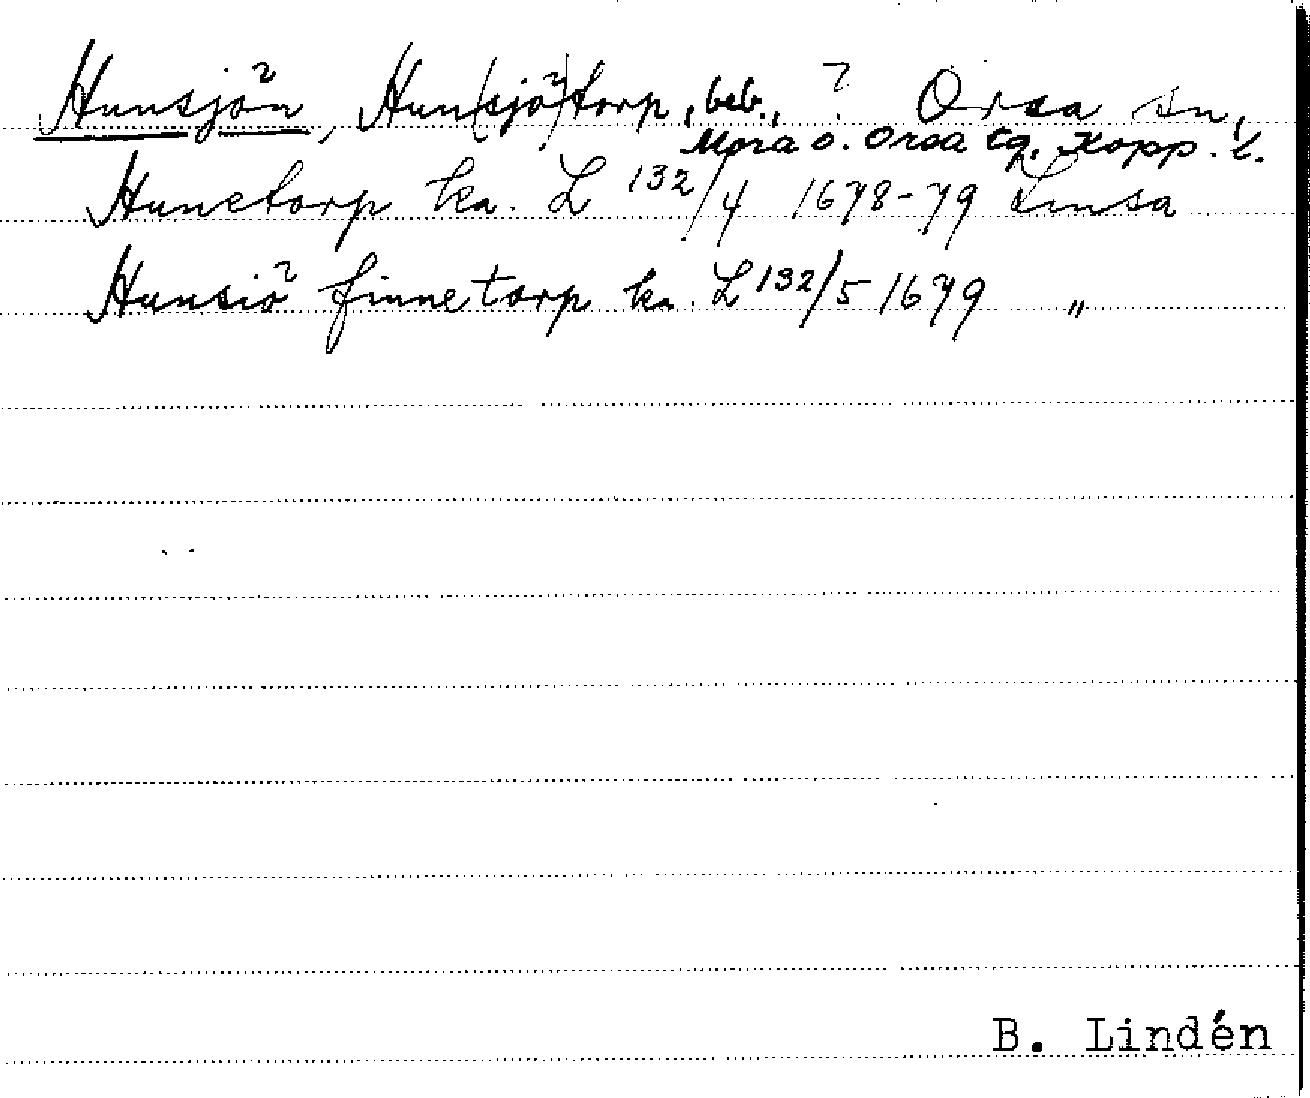 Hunsjön, Hun(sjö)torp, beb., ? Orsa sn,
Mora o. Orsa tg. Kopp. l.
Hunetorp ka. L 132/4 1678-79 Linsa
Hunsiö finnetorp ka. L 132/5 1679 "
B. Lindén